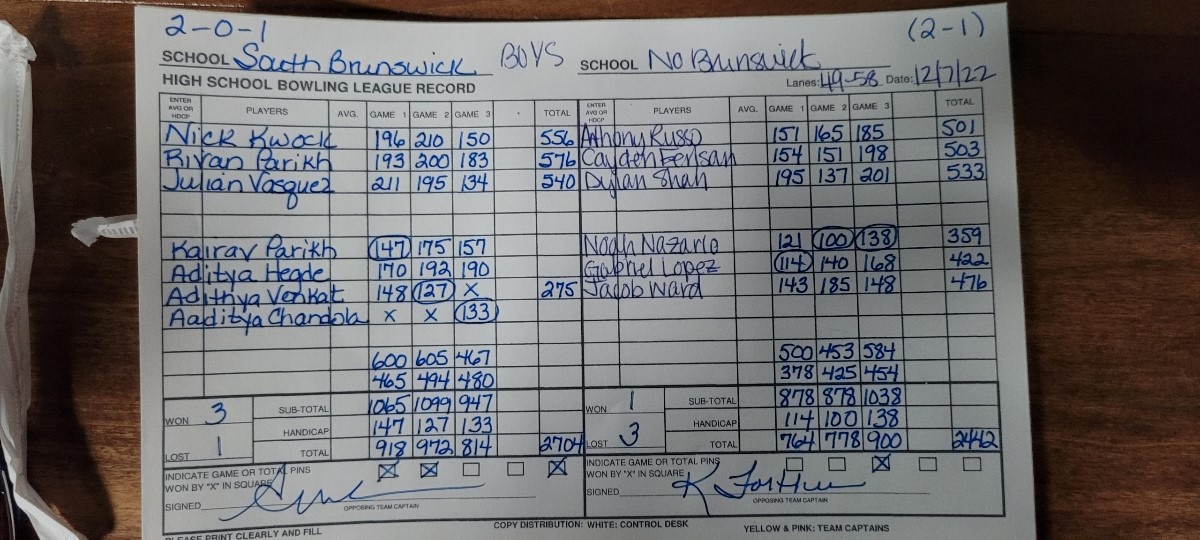 2-0-1 (2-1)
SCHOOL South Brunswick BOYS SCHOOL No Brunswick
HIGH SCHOOL BOWLING LEAGUE RECORD Lanes: 49-58 Date: 12/7/22
ENTER AVG OR HDCP PLAYERS AVG. GAME 1 GAME 2 GAME 3 TOTAL ENTER AVG OR HDCP PLAYERS AVG. GAME 1 GAME 2 GAME 3 TOTAL
Nick Kwock 196 210 150 556 Anthony Russo 151 165 185 501
Rivan Parikh 193 200 183 576 Cayden 154 151 198 503
Julian Vasquez 211 195 134 540 Dylan Shah 195 137 201 533
Kairav Parikh 147 175 157 Noah Nazario 121 100 138 359
Aditya Hegde 170 192 190 Gabriel Lopez 114 140 168 422
Adithya Venkat 148 127 X 275 Jacob Ward 143 185 148 476
Aaditya Chandola X X 133
600 605 467 500 453 584
465 494 480 378 425 454
WON 3 SUB-TOTAL 1065 1099 947 WON 1 SUB-TOTAL 878 878 1038
HANDICAP 147 127 133 HANDICAP 114 100 138
LOST 1 TOTAL 918 972 814 2704 LOST 3 TOTAL 764 778 900 2442
INDICATE GAME OR TOTAL PINS WON BY "X" IN SQUARE X X X INDICATE GAME OR TOTAL PINS WON BY "X" IN SQUARE X
SIGNED OPPOSING TEAM CAPTAIN SIGNED OPPOSING TEAM CAPTAIN
PLEASE PRINT CLEARLY AND FILL COPY DISTRIBUTION: WHITE: CONTROL DESK YELLOW & PINK: TEAM CAPTAINS